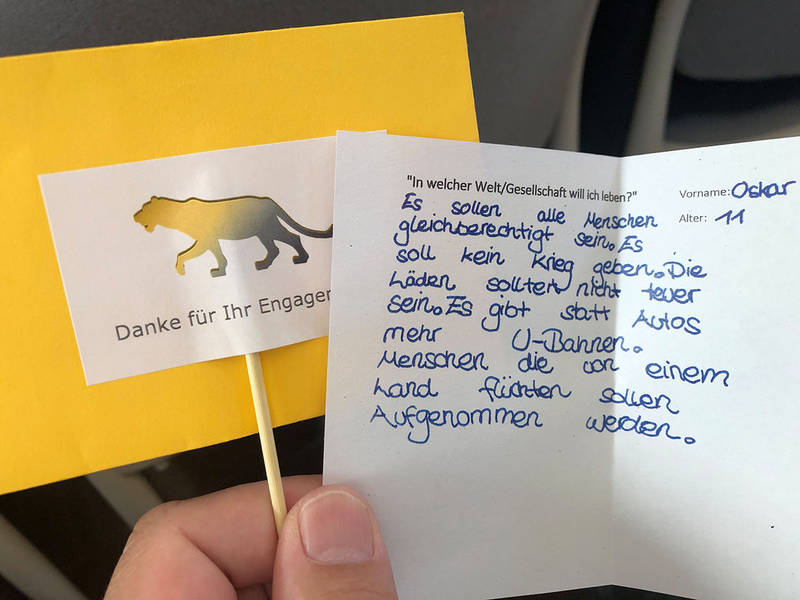 Danke für Ihr Engagem
"In welcher Welt/Gesellschaft will ich leben?"
Vorname: Oskar
Alter: 11
Es sollen alle Menschen
gleichberechtigt sein. Es
soll kein Krieg geben. Die
Läden sollten nicht teuer
sein. Es gibt statt Autos
mehr U-Bahnen.
Menschen die von einem
Land flüchten sollen
Aufgenommen werden.